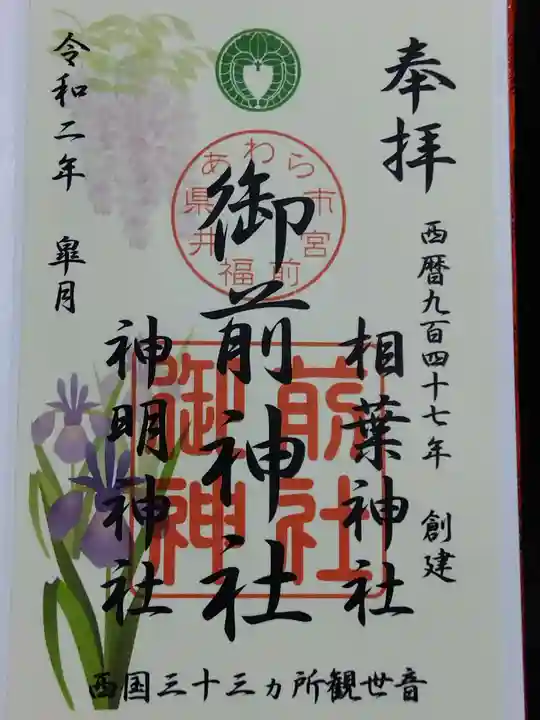 奉拝
西暦九百四十七年 創建
相葉神社
御前神社
神明神社
令和二年 皐月
福井県あわら市宮前
御前神社
西国三十三ヵ所観世音